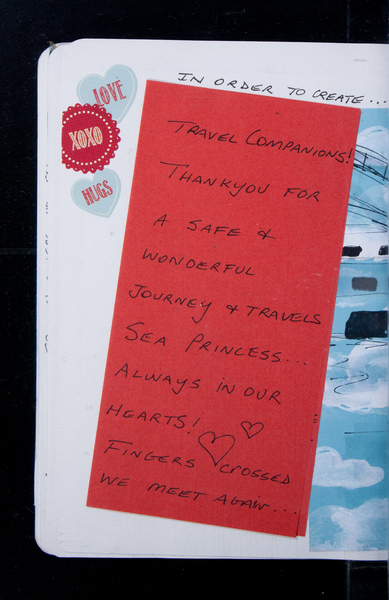 IN ORDER TO CREATE...
LOVE
XOXO
HUGS
TRAVEL COMPANIONS!
THANKYOU FOR
A SAFE &
WONDERFUL
JOURNEY & TRAVELS
SEA PRINCESS...
ALWAYS IN OUR
HEARTS!
FINGERS CROSSED
WE MEET AGAIN...